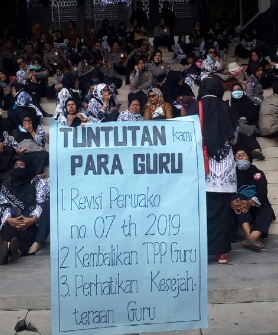 TUNTUTAN kami
PARA GURU
1. Revisi Perwako
no. 07 th 2019.
2. Kembalikan TPP Guru.
3. Perhatikan Kesejah-
teraan Guru